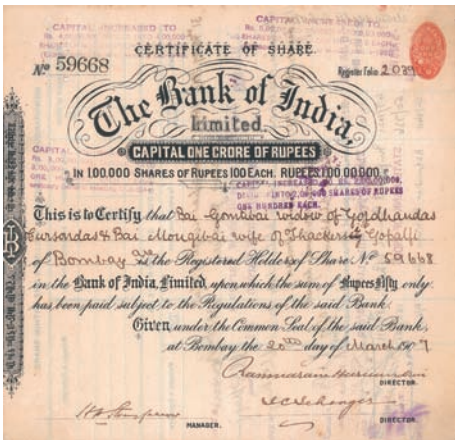 CERTIFICATE OF SHARE.
No 59668
Register Folio 2039
The Bank of India,
Limited.
CAPITAL ONE CRORE OF RUPEES
IN 1,00,000 SHARES OF RUPEES 100 EACH. RUPEES 1,00,00,000.
CAPITAL INCREASED TO RS. 2,00,00,000,
DIVIDED INTO 2,00,000 SHARES OF RUPEES
ONE HUNDRED EACH.
This is to Certify that Bai Gontibai widow of Gordhandas
Cursondas & Bai Mongibai wife of Thackersey Gopalji
of Bombay is the Registered Holders of Share No 59668
in the Bank of India, Limited, upon which the sum of Rupees Fifty only
has been paid subject to the Regulations of the said Bank.
Given under the Common Seal of the said Bank,
at Bombay the 20th day of March 1907
DIRECTOR.
DIRECTOR.
MANAGER.